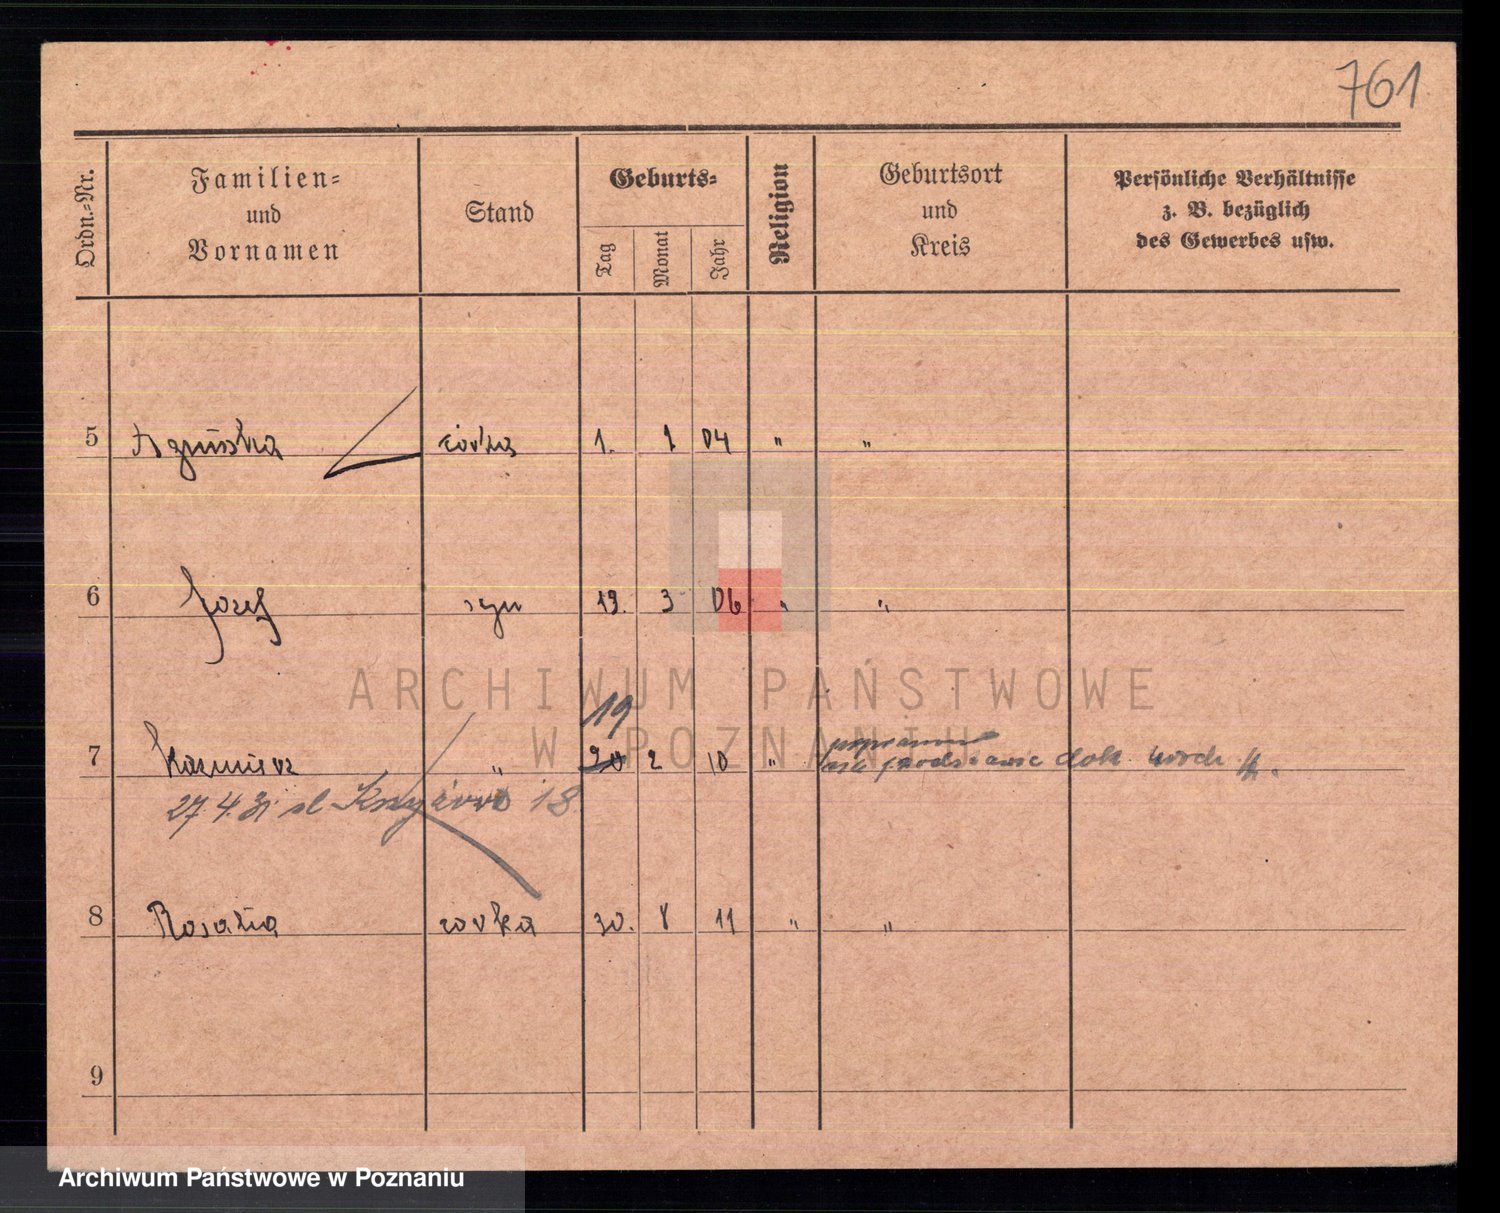 761
Ordn.=Nr.
Familien=
und
Vornamen
Stand
Geburts=
Tag
Monat
Jahr
Religion
Geburtsort
und
Kreis
Persönliche Verhältnisse
z. B. bezüglich
des Gewerbes usw.
5 Agnieszka córka 1. 1 04 " "
6 Józef syn 19. 3 06 " "
19
7 Kazmierz " 20 2 10 " poprawiono
na podstawie dok. urodz.
27.4.31 ul. 18
8 Rozalia córka 30. 8 11 " "
9
ARCHIWUM PAŃSTWOWE
W POZNANIU
Archiwum Państwowe w Poznaniu